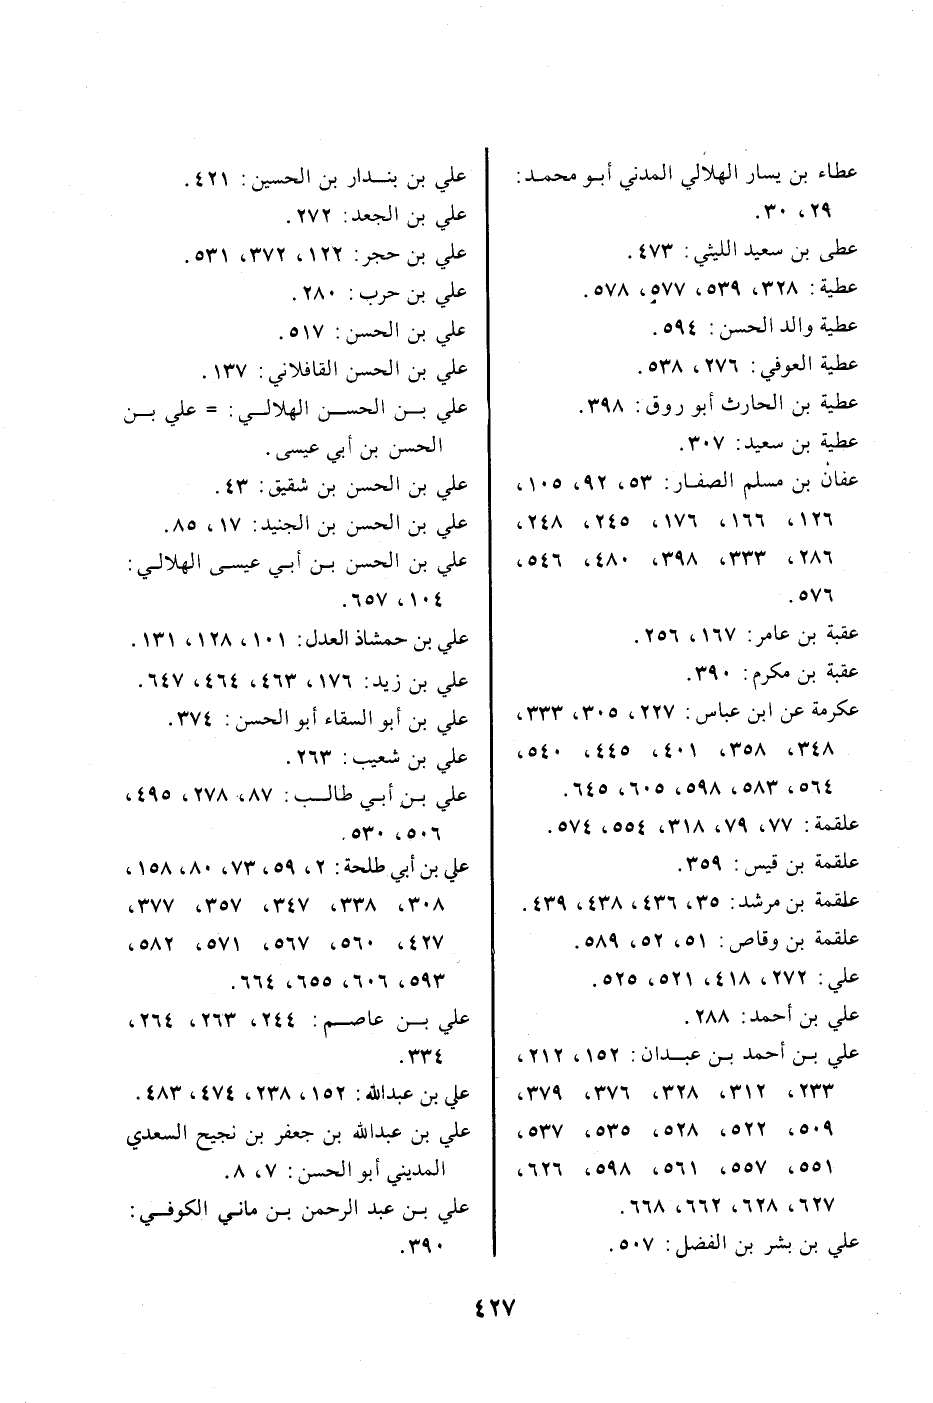 عطاء بن يسار الهلالي المدني أبو محمد:
٢٩، ٣٠.
عطى بن سعيد الليثي: ٤٧٣.
عطية: ٣٢٨، ٥٣٩، ٥٧٧، ٥٧٨.
عطية والد الحسن: ٥٩٤.
عطية العوفي: ٢٧٦، ٥٣٨.
عطية بن الحارث أبو روق: ٣٩٨.
عطية بن سعيد: ٣٠٧.
عفان بن مسلم الصفار: ٥٣، ٩٢، ١٠٥،
١٢٦، ١٦٦، ١٧٦، ٢٤٥، ٢٤٨،
٢٨٦، ٣٣٣، ٣٩٨، ٤٨٠، ٥٤٦،
٥٧٦.
عقبة بن عامر: ١٦٧، ٢٥٦.
عقبة بن مكرم: ٣٩٠.
عكرمة عن ابن عباس: ٢٢٧، ٣٠٥، ٣٣٣،
٣٤٨، ٣٥٨، ٤٠١، ٤٤٥، ٥٤٠،
٥٦٤، ٥٨٣، ٥٩٨، ٦٠٥، ٦٤٥.
علقمة: ٧٧، ٧٩، ٣١٨، ٥٥٤، ٥٧٤.
علقمة بن قيس: ٣٥٩.
علقمة بن مرشد: ٣٥، ٤٣٦، ٤٣٨، ٤٣٩.
علقمة بن وقاص: ٥١، ٥٢، ٥٨٩.
علي: ٢٧٢، ٤١٨، ٥٢١، ٥٢٥.
علي بن أحمد: ٢٨٨.
علي بن أحمد بن عبدان: ١٥٢، ٢١٢،
٢٣٣، ٣١٢، ٣٢٨، ٣٧٦، ٣٧٩،
٥٠٩، ٥٢٢، ٥٢٨، ٥٣٥، ٥٣٧،
٥٥١، ٥٥٧، ٥٦١، ٥٩٨، ٦٢٦،
٦٢٧، ٦٢٨، ٦٦٢، ٦٦٨.
علي بن بشر بن الفضل: ٥٠٧.
علي بن بندار بن الحسين: ٤٢١.
علي بن الجعد: ٢٧٢.
علي بن حجر: ١٢٢، ٣٧٢، ٥٣١.
علي بن حرب: ٢٨٠.
علي بن الحسن: ٥١٧.
علي بن الحسن القافلاني: ١٣٧.
علي بن الحسن الهلالي: = علي بن
الحسن بن أبي عيسى.
علي بن الحسن بن شقيق: ٤٣.
علي بن الحسن بن الجنيد: ١٧، ٨٥.
علي بن الحسن بن أبي عيسى الهلالي:
١٠٤، ٦٥٧.
علي بن حمشاذ العدل: ١٠١، ١٢٨، ١٣١.
علي بن زيد: ١٧٦، ٤٦٣، ٤٦٤، ٦٤٧.
علي بن أبو السقاء أبو الحسن: ٣٧٤.
علي بن شعيب: ٢٦٣.
علي بن أبي طالب: ٨٧، ٢٧٨، ٤٩٥،
٥٠٦، ٥٣٠.
علي بن أبي طلحة: ٢، ٥٩، ٧٣، ٨٠، ١٥٨،
٣٠٨، ٣٣٨، ٣٤٧، ٣٥٧، ٣٧٧،
٤٢٧، ٥٦٠، ٥٦٧، ٥٧١، ٥٨٢،
٥٩٣، ٦٠٦، ٦٥٥، ٦٦٤.
علي بن عاصم: ٢٤٤، ٢٦٣، ٢٦٤،
٣٣٤.
علي بن عبدالله: ١٥٢، ٢٣٨، ٤٧٤، ٤٨٣.
علي بن عبدالله بن جعفر بن نجيح السعدي
المديني أبو الحسن: ٧، ٨.
علي بن عبد الرحمن بن ماني الكوفي:
٣٩٠.
٤٢٧